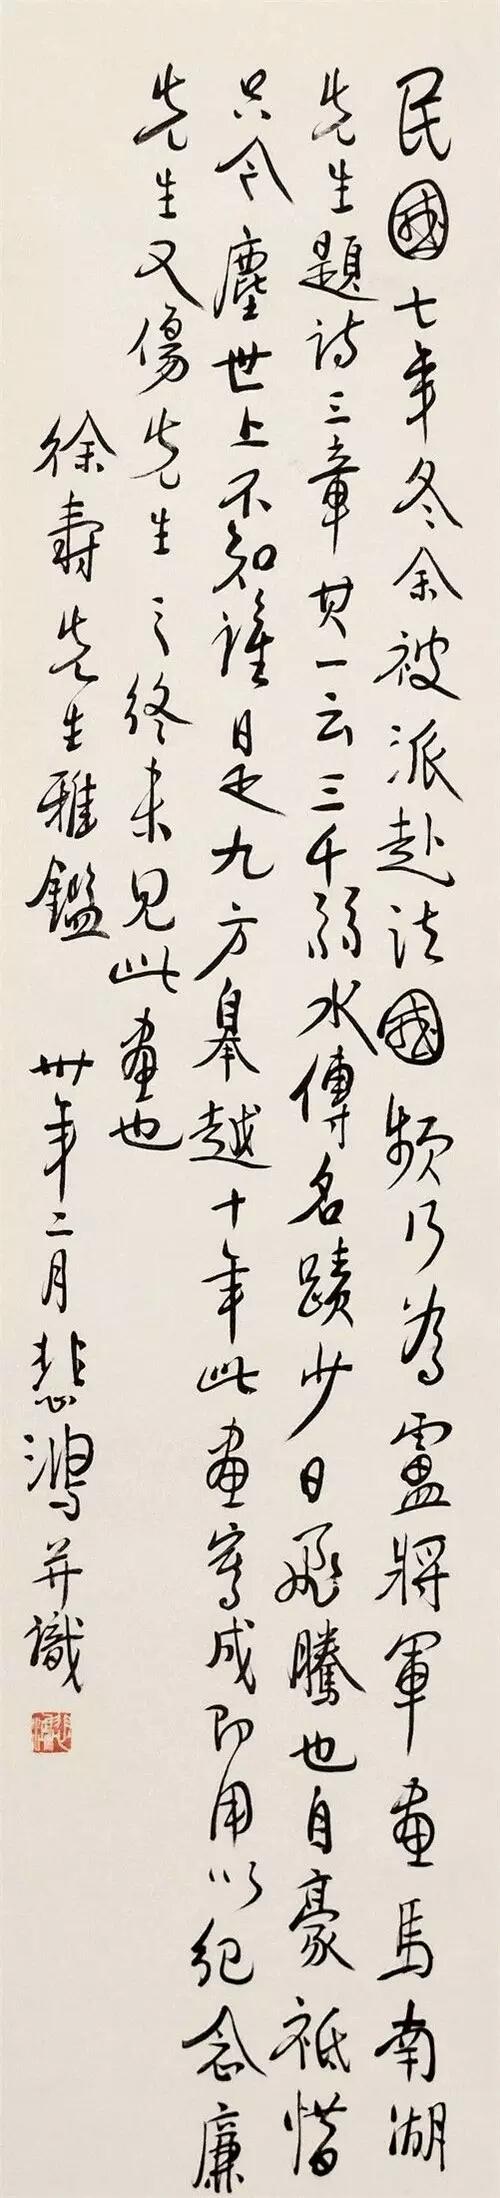 民國七年冬余被派赴法國頻乃為盧將軍畫馬南湖
先生題詩三章其一云三千弱水傳名蹟少日飛騰也自豪祗惜
只今塵世上不知誰是九方皋越十年此畫寫成即用以紀念廉
先生又傷先生之終未見此畫也
徐壽先生雅鑑 卅年二月悲鴻并識